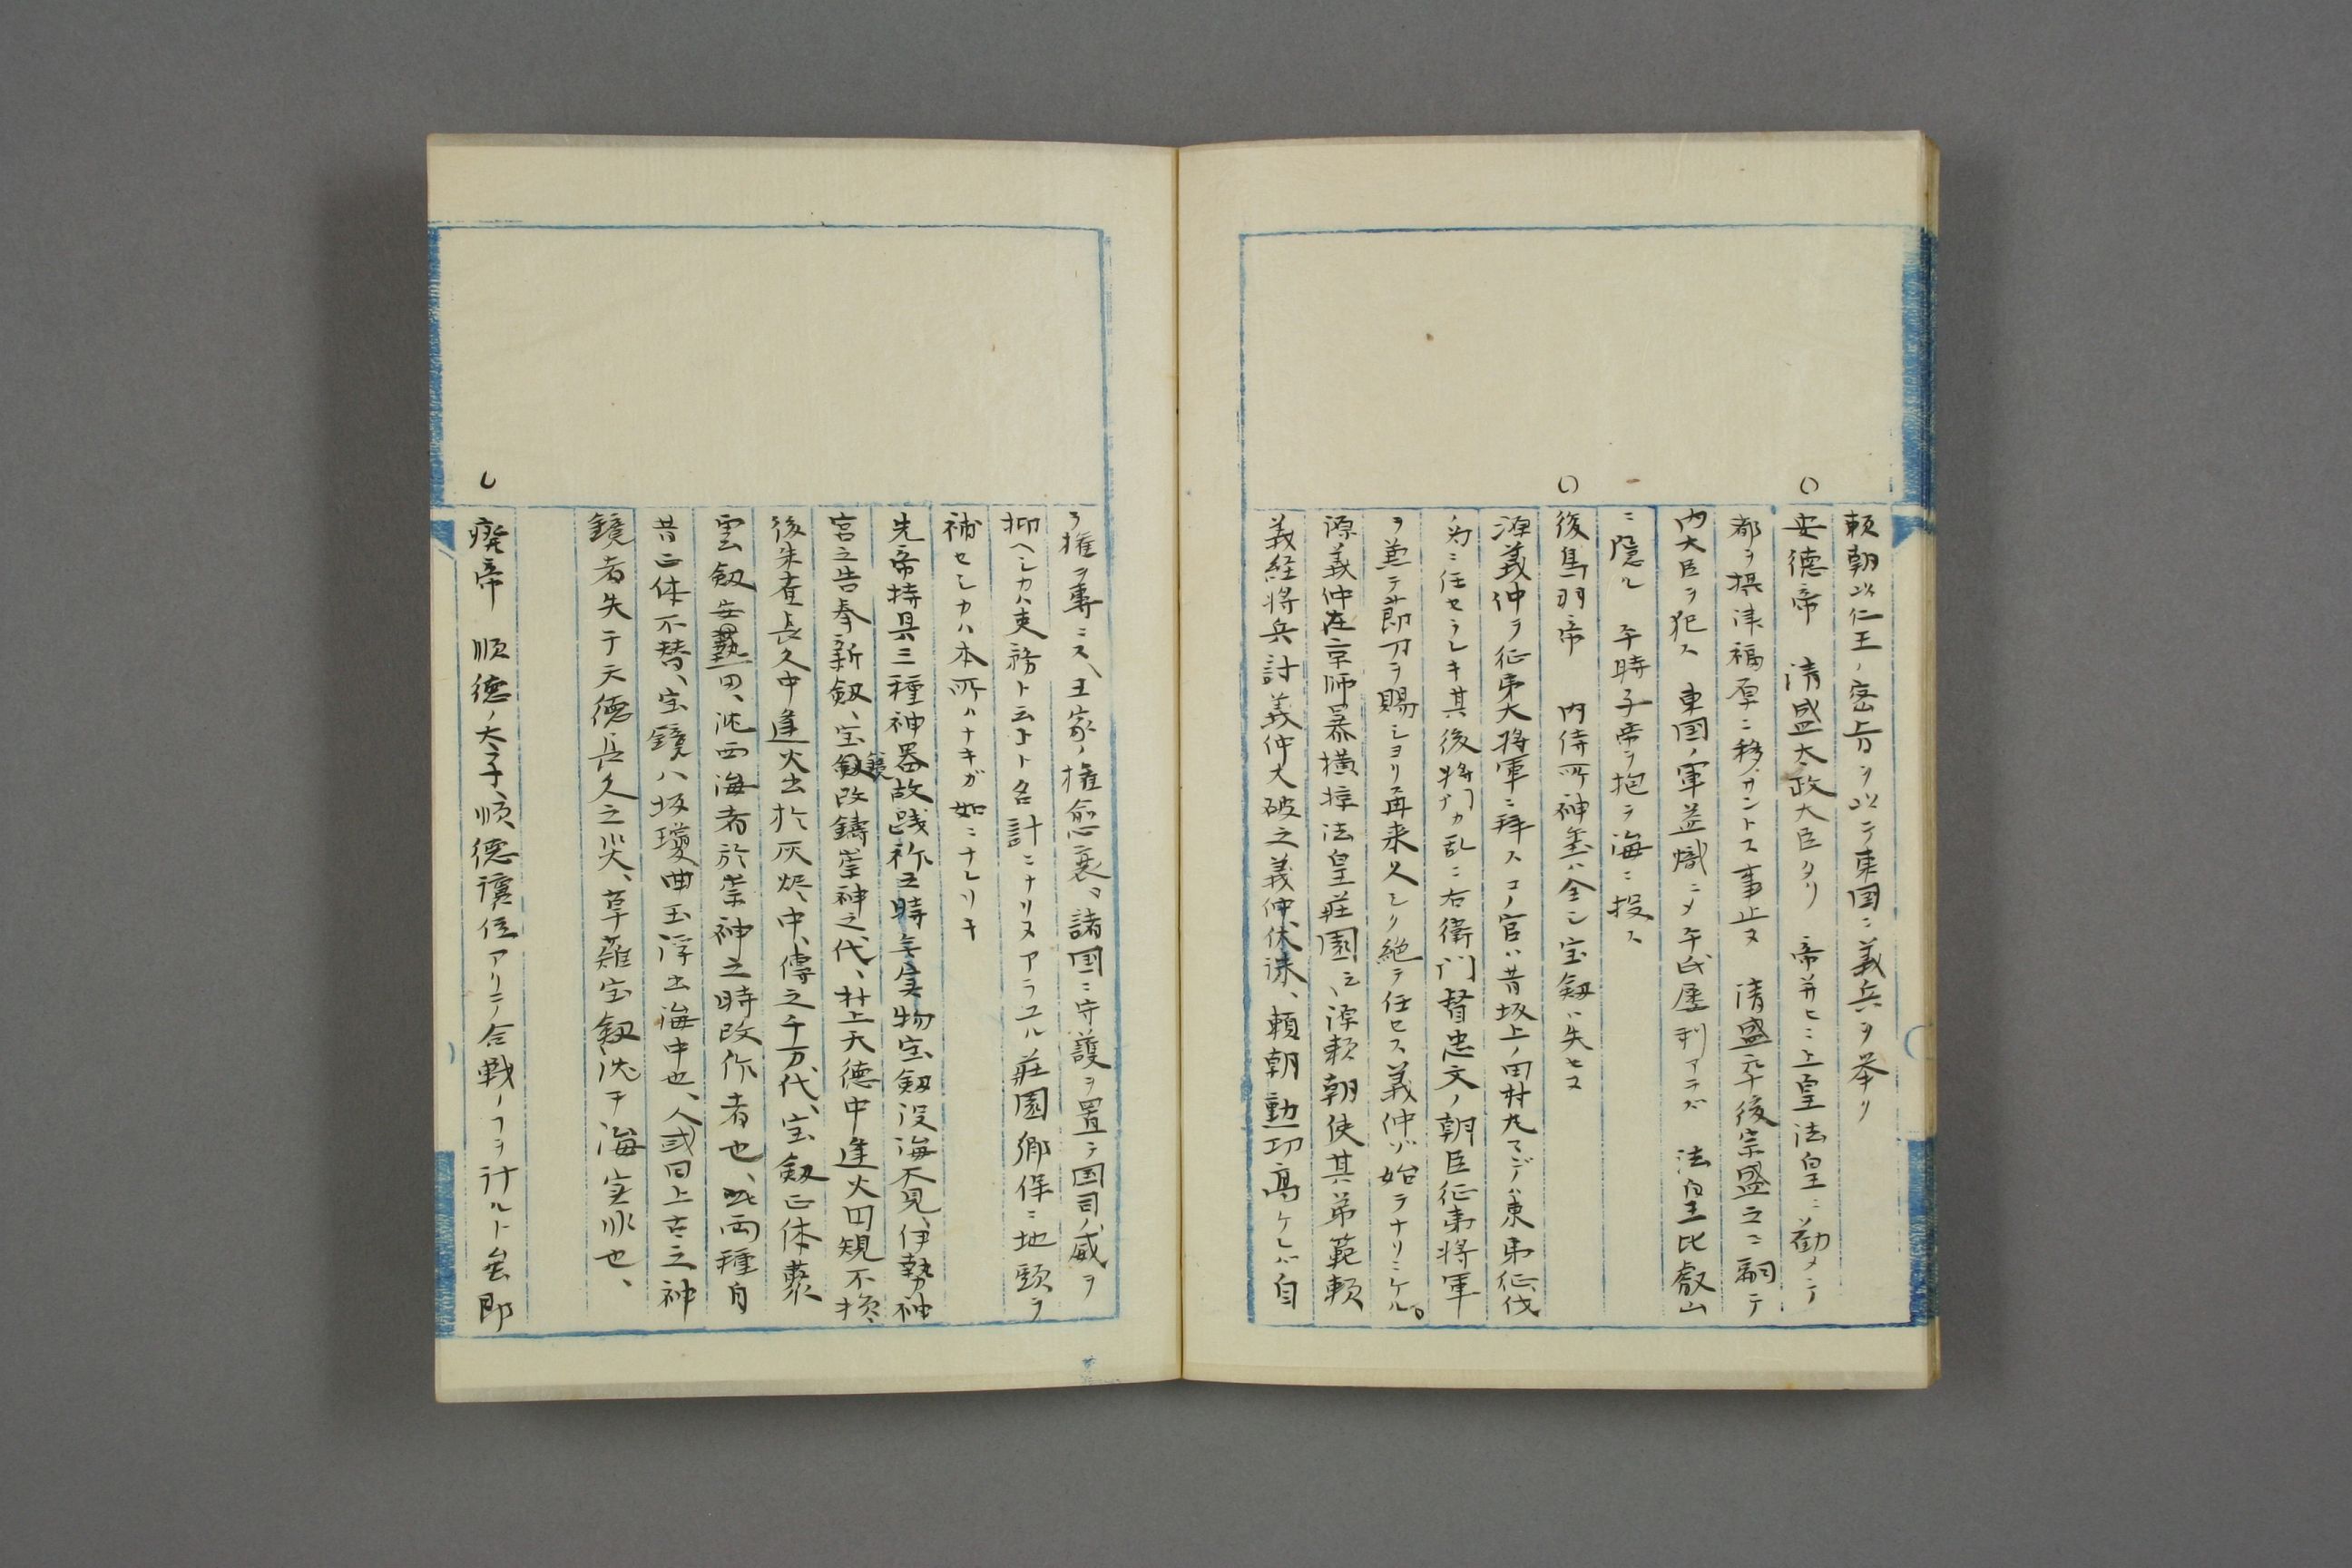 頼朝以仁王ノ密旨ヲ以テ東国ニ義兵ヲ挙リ
安徳帝 清盛太政大臣タリ 帝并ヒニ上皇法皇ニ勸メテ
都ヲ摂津福原ニ移サントス事止ヌ 清盛卒後宗盛之ニ嗣テ
内大臣ヲ犯ス 東国ノ軍益熾ニメ平氏屡利アラズ 法皇比叡山
ニ隠ル 平時子帝ヲ抱テ海ニ投ス
後鳥羽帝 内侍所神璽ハ全シ宝釼ハ失セヌ
源義仲ヲ征夷大将軍ニ拜スコノ官ハ昔坂上ノ田村丸マデハ東夷征伐
ノ為ニ任セラレキ其後将門カ乱ニ右衛門督忠文ノ朝臣征東将軍
ヲ兼テ節刀ヲ賜シヨリ再来久シク絶テ任セス義仲ゾ始テナリニケル。
源義仲在京師暴横掠法皇莊園ニ源頼朝使其弟範頼
義経将兵討義仲大破之義仲伏誅、頼朝勳功高ケレバ自
ラ權ヲ專ニス、王家ノ權愈衰ヌ諸国ニ守護ヲ置テ国司ノ威ヲ
抑ヘシカハ吏務ト云コト名計ニナリヌアラユル莊園郷保ニ地頭ヲ
補セシカハ本所ハナキガ如ニナレリキ
先帝持具三種神器故践祚之時無実物宝釼没海不見、伊勢神
宮之告奉新釼、宝鏡改鑄崇神之代、村上天徳中逢火円規不損、
後朱雀長久中逢火出於灰燼中、傳之千万代、宝釼正体叢
雲釼安熱田、沈西海者於崇神之時改作者也、此両種自
昔正体不替、宝鏡八坂瓊曲玉浮出海中也、人或曰上古之神
鏡者失于天徳長久之災、草薙宝釼沈于海実非也、
廃帝 順徳ノ太子、順徳讓位アリテ合戦ノコヲ計ルト去即